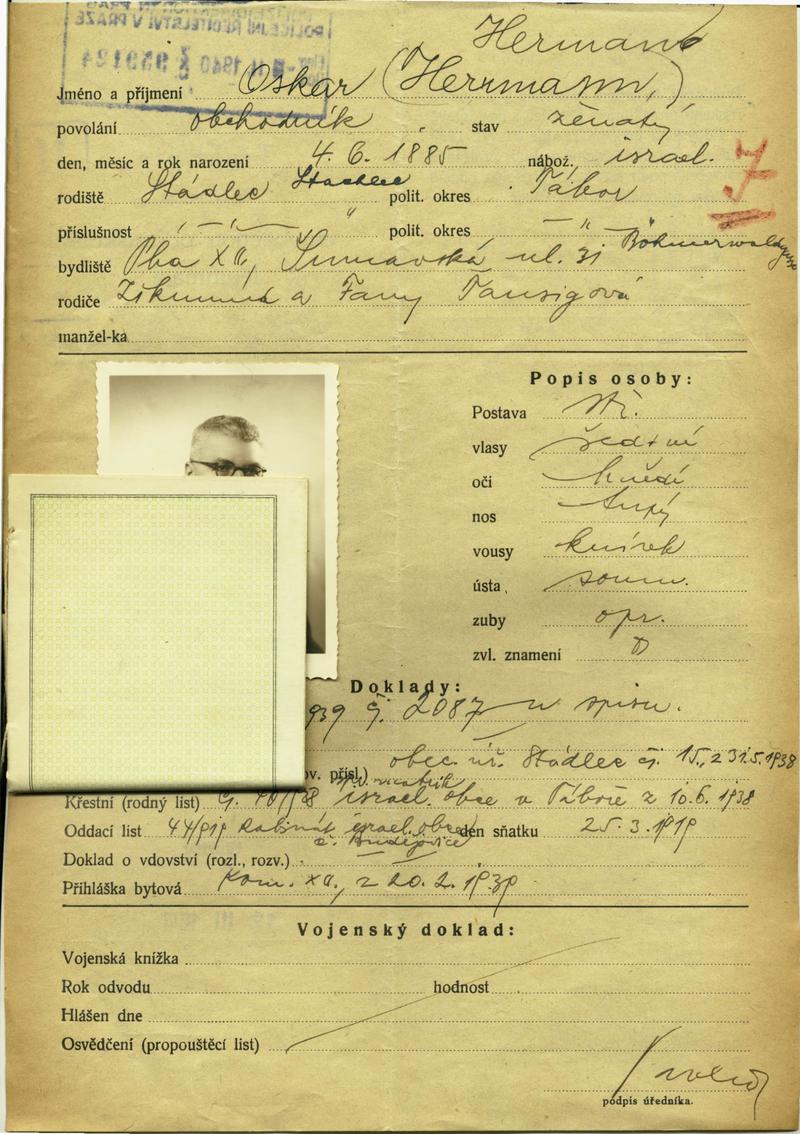 POLICEJNÍ ŘEDITELSTVÍ V PRAZE
1940 959124
Hermann
Jméno a příjmení Oskar (Herrmann)
povolání obchodník stav ženatý
den, měsíc a rok narození 4. 6. 1885 nábož. israel.
7
rodiště Stádlec Stachlec polit. okres Tábor
příslušnost — " — polit. okres — " —
bydliště Pha XII, Šumavská ul. 31 Böhmerwaldgasse
rodiče Zikmund a Fany Tausigová
manžel-ka
Popis osoby:
Postava stř.
vlasy šedivé
oči hnědé
nos tupý
vousy knírek
ústa soum.
zuby opr.
zvl. znamení
Doklady:
939 č. 2087 u spisu.
ov. přísl.) obec. úř. Stádlec čj. 15, z 31.5.1938
Křestní (rodný list) israel. obce v Táboře z 10. 6. 1938
Oddací list 44/919 Rabinát israel. obce den sňatku 25. 3. 1919
č. Budějovice
Doklad o vdovství (rozl., rozv.) —
Přihláška bytová Kom. XII, z 20. 2. 1939
Vojenský doklad:
Vojenská knížka
Rok odvodu hodnost
Hlášen dne
Osvědčení (propouštěcí list)
podpis úředníka.